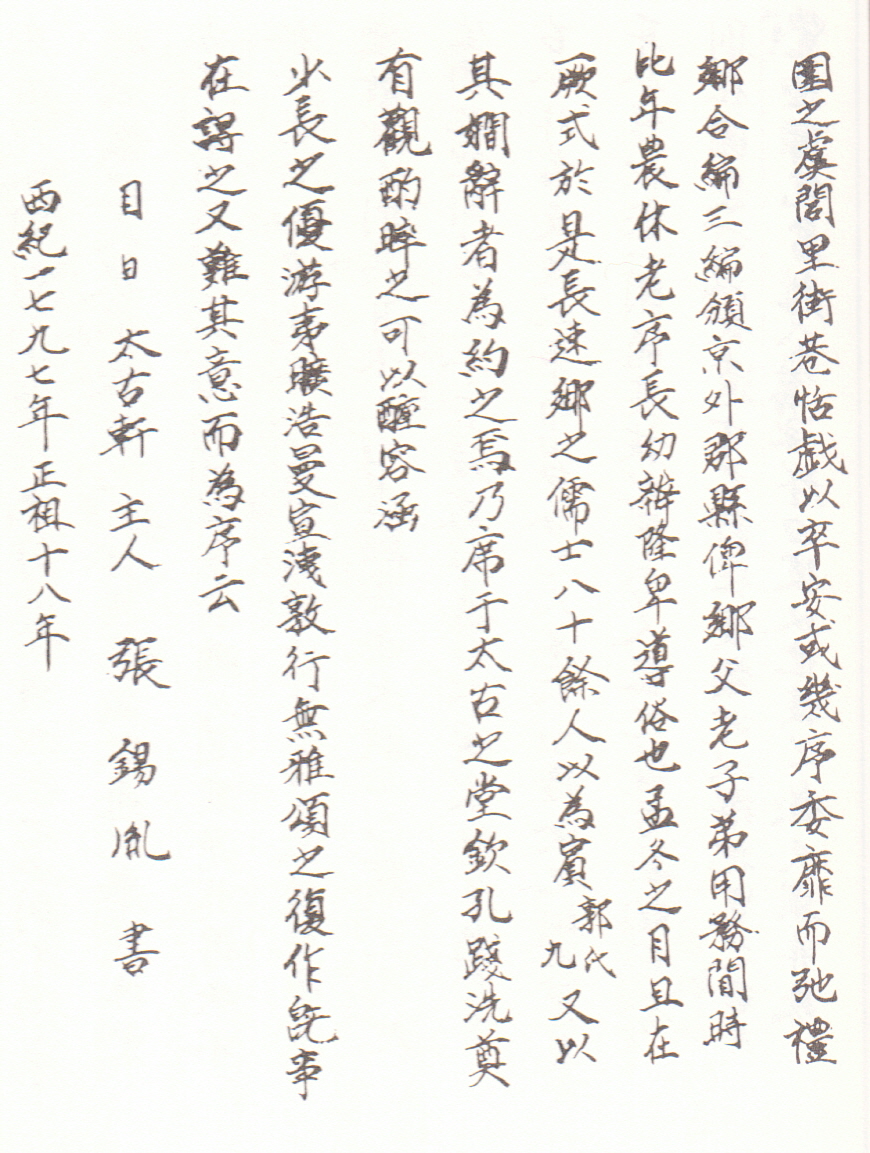 圉之虞閭里街巷恬戱以卒安或幾序委靡而弛禮
鄉合編三編頒京外郡縣俾鄉父老子弟用務閒時
比年農休老序長幼辨隆卑導俗也孟冬之月且在
厥式於是長速鄉之儒士八十餘人以為賓郭九代又以
其嫺辭者為約之焉乃席于太古之堂欽孔踐洗奠
有觀酌晬之可以醧容涵
少長之優游夷曠浩曼宣淺敦行無雅頌之復作旣事
在諝之又難其意而為序云
月日 太古軒 主人 張 錫胤 書
西紀一七九七年正祖十八年